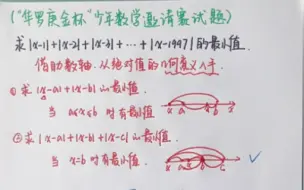 ("华罗庚金杯"少年数学邀请赛试题)
求|x-1|+|x-2|+|x-3|+…+|x-1997|的最小值.
借助数轴.从绝对值的几何意义入手.
①求|x-a|+|x-b|的最小值.
当 a≤x≤b 时有最小值
a x b x
②求|x-a|+|x-b|+|x-c|的最小值.
当 x=b 时有最小值.
a b c